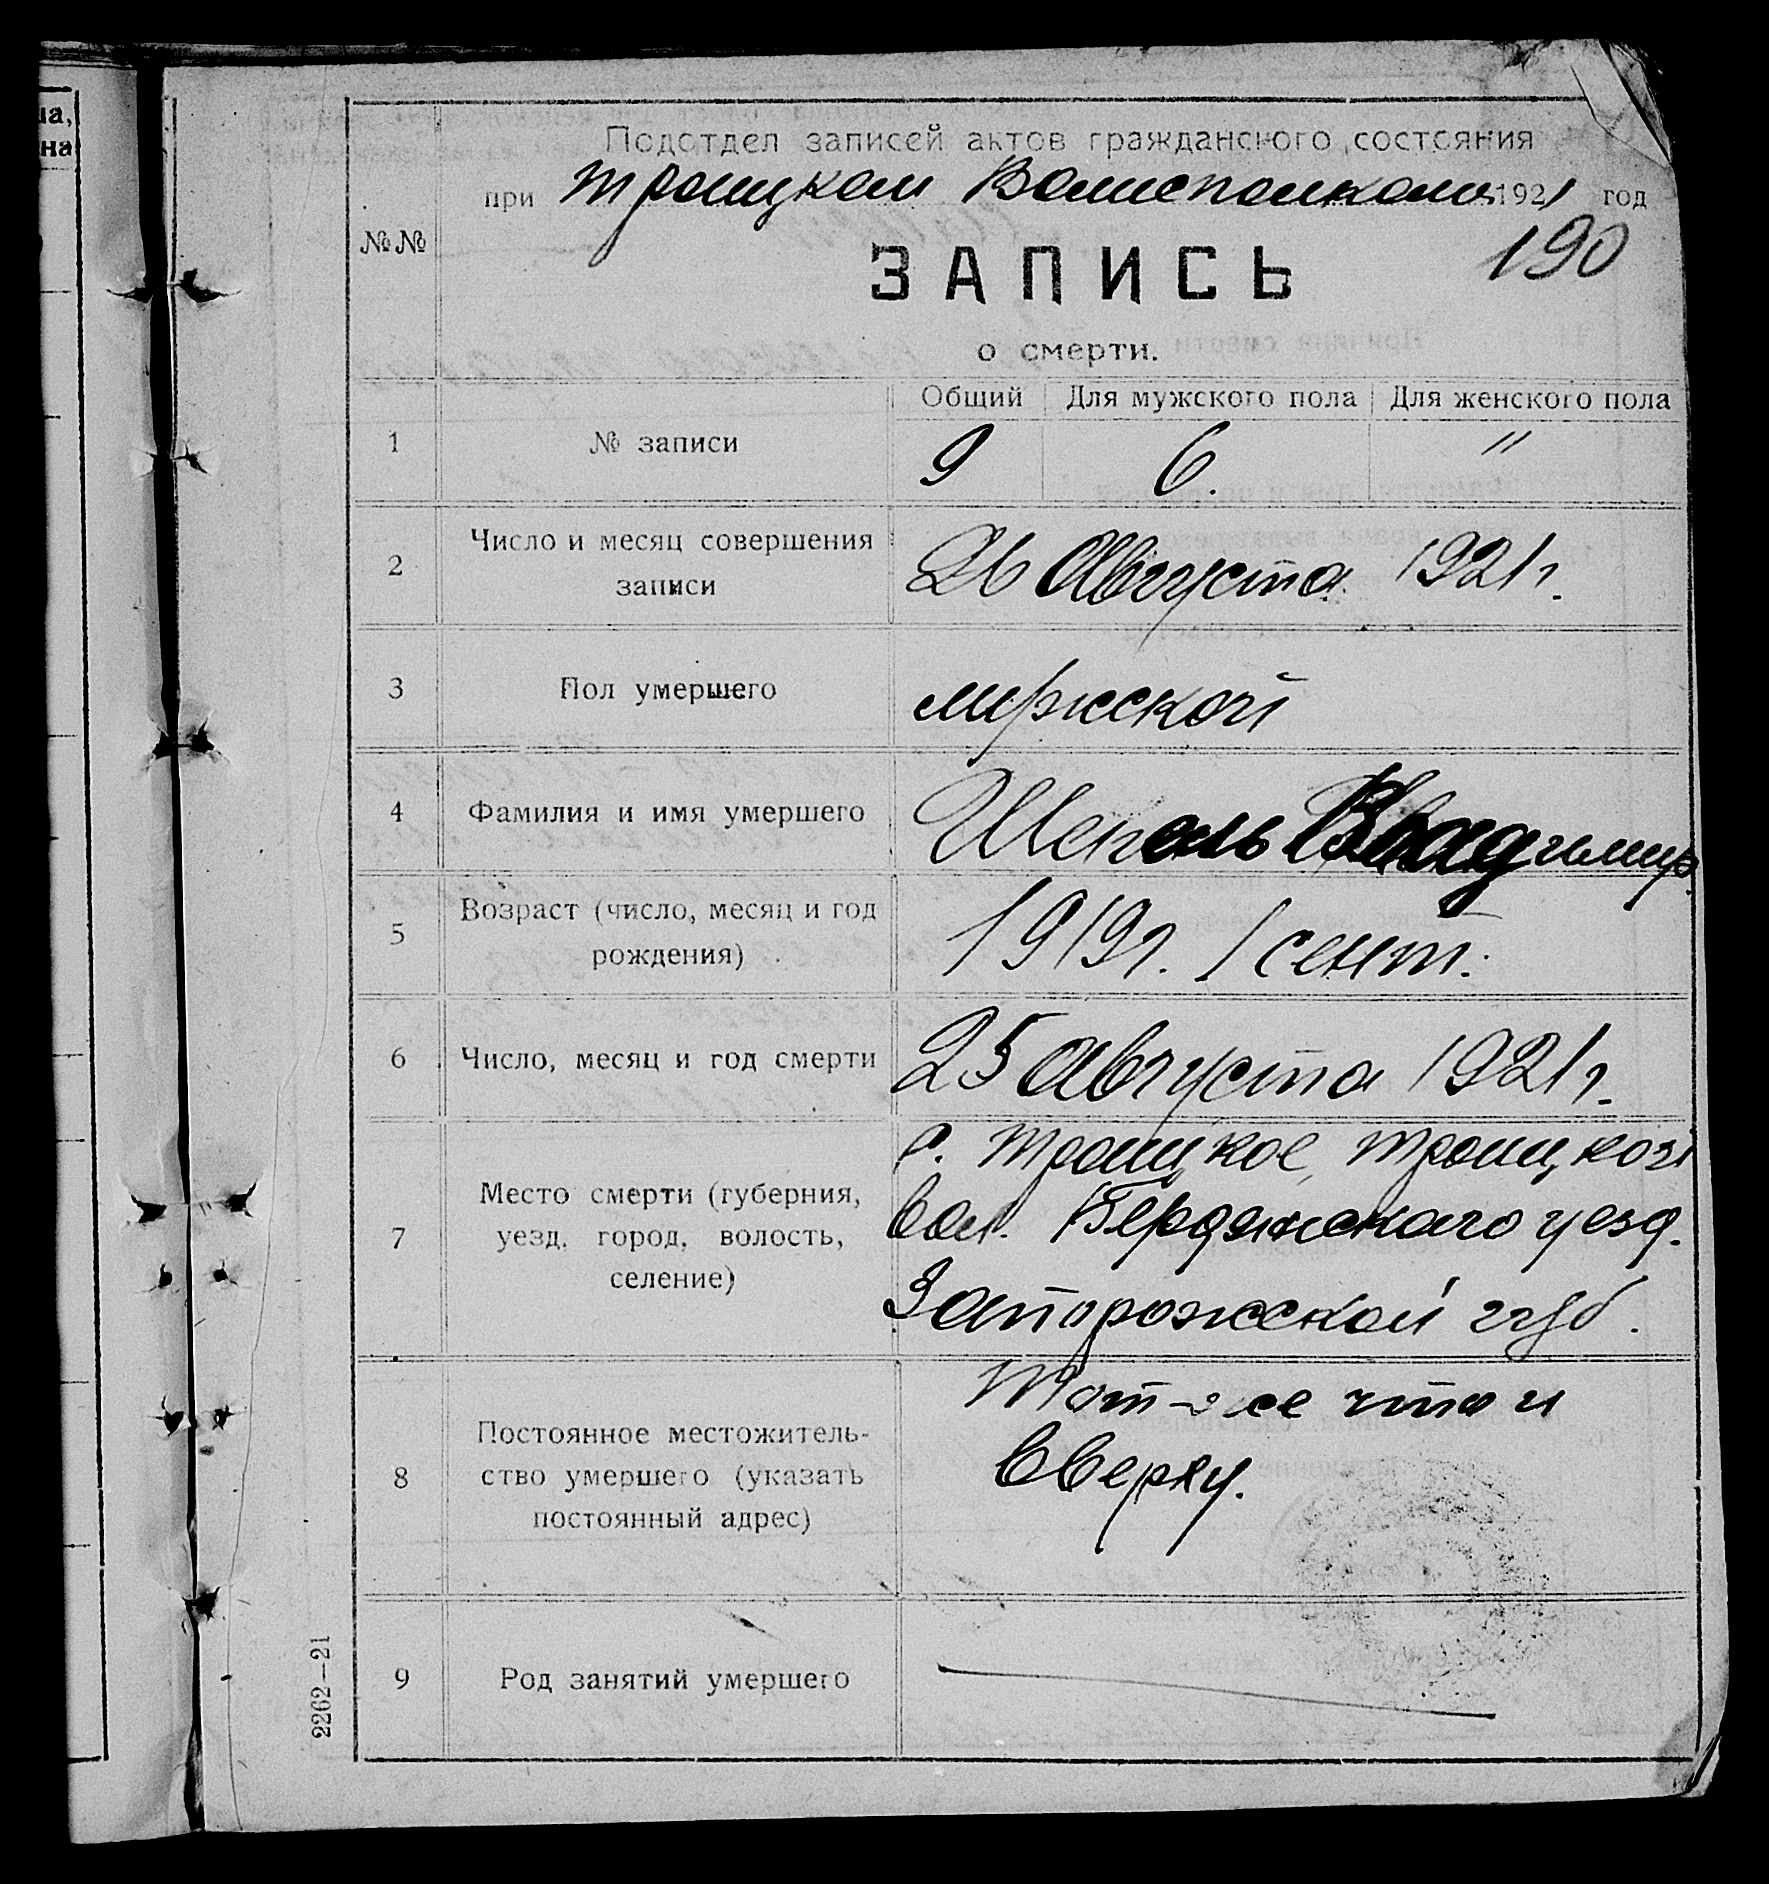 ла,
на
Подотдел записей актов гражданского состояния
при Троицком Волисполкоме 1921 год
190
№№
ЗАПИСЬ
о смерти.
Общий Для мужского пола Для женского пола
1 № записи 9 6. "
2 Число и месяц совершения
записи
26 Августа 1921 г.
3 Пол умершего мужской
4 Фамилия и имя умершего Владимир
5 Возраст (число, месяц и год
рождения)
1919 г. 1 сент.
6 Число, месяц и год смерти 25 Августа 1921 г.
7 Место смерти (губерния,
уезд, город, волость,
селение)
с. Троицкое, Троицкой
вол. Бердянского уезд.
Запорожской губ.
8 Постоянное местожитель-
ство умершего (указать
постоянный адрес)
Тот-же что и
вверху.
9 Род занятий умершего
2262—21